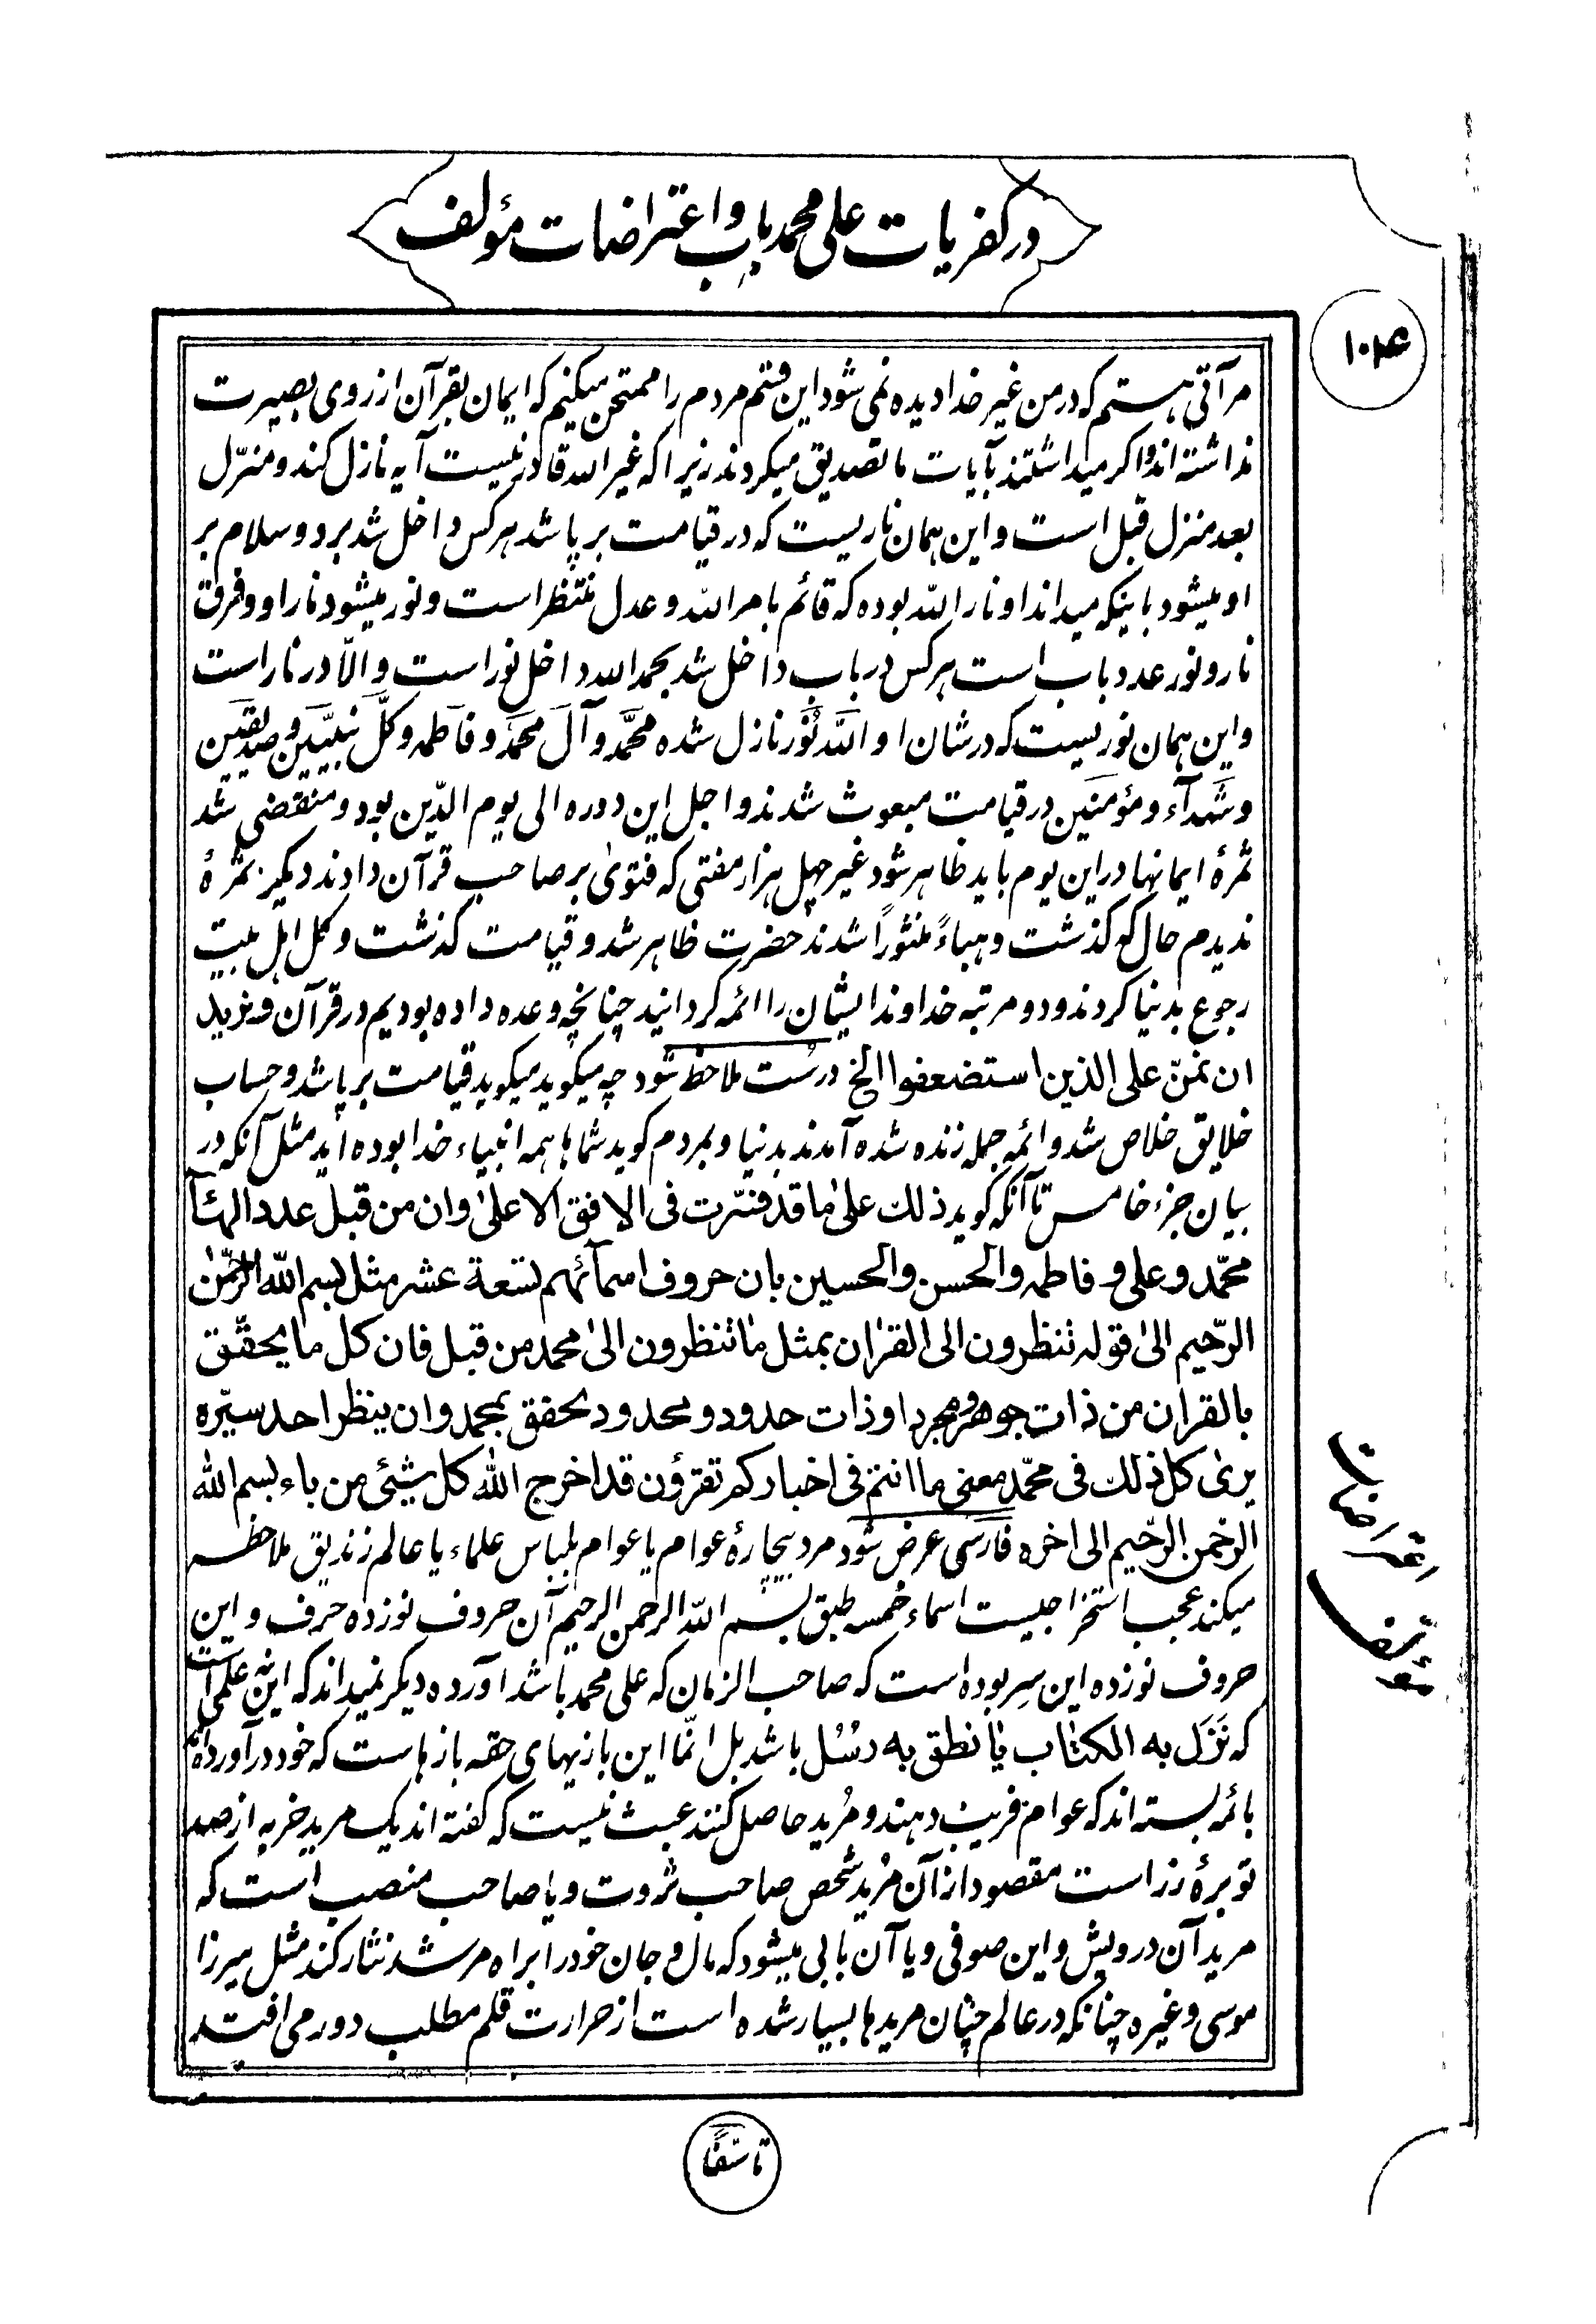 در کفریات علی محمد باب و اعتراضات مؤلف
مرآتی هستم که در من غیر خدا دیده نمی شود این قسم مردم را ممتحن میکنیم که ایمان بقرآن از روی بصیرت
نداشته اند و اکر میداشتند بآیات ما تصدیق میکردند زیرا که غیر الله قادر نیست آیه نازل کند و منزّل
بعد منزل قبل است و این همان ناریست که در قیامت بر پا شد هر کس داخل شد برد و سلام بر
او میشود باینکه میداند او نار الله بوده که قائم بامر الله و عدل منتظر است و نور میشود نار او و فرق
نار و نور عدد باب است هر کس در باب داخل شد بحمد الله داخل نور است و الّا در نار است
و این همان نوریست که در شان او الله نور نازل شده محمّد و آل محمّد و فاطمه و کلّ نبیّین و صدیقین
و شهدآء و مؤمنین در قیامت مبعوث شدند و اجل این دوره الی یوم الدّین بود و منقضی شد
ثمرهٔ ایمانها در این یوم باید ظاهر شود غیر چهل هزار مفتی که فتوی بر صاحب قرآن دادند دیکر ثمرهٔ
ندیدم حال که کذشت و هباءً منثوراً شدند حضرت ظاهر شد و قیامت کذشت و کل اهل بیت
رجوع بدنیا کردند و دو مرتبه خداوند ایشان را ائمه کردانید چنانچه وعده داده بودیم در قرآن و نرید
ان نمنّ علی الذین استضعفوا الخ درست ملاحظه شود چه میکوید میکوید قیامت بر پا شد و حساب
خلایق خلاص شد و ائمه جمله زنده شده آمدند بدنیا و بمردم کوید شماها همه انبیاء خدا بوده اید مثل آنکه در
بیان جزء خامس تا آنکه کوید ذلک علی ما قد فسّرت فی الافق الاعلی و ان من قبل عدد الهآء
محمّد و علی و فاطمه والحسن والحسین بان حروف اسمآئهم تسعة عشر مثل بسم اللّه الرّحمن
الرّحیم الی قوله تنظرون الی القران بمثل ما تنظرون الی محمد من قبل فان کل ما یحقّق
بالقران من ذات جوهر و مجرد او ذات حدود و محدود یحقق بمحمد و ان ینظر احد سیّره
یری کل ذلک فی محمّد معنی ما انتم فی اخبارکم تقرؤن قد اخرج الله کل شیئی من باء بسم الله
الرحمن الرّحیم الی اخره فارسی عرض شود مرد بیچارهٔ عوام یا عوام بلباس علماء یا عالم زندیق ملاحظه
میکند عجب استخراجیست اسماء خمسه طبق بسم اللّه الرحمن الرحیم آن حروف نوزده حرف و این
حروف نوزده این سر بوده است که صاحب الزمان که علی محمد باشد آورده دیکر نمیداند که این نه علمی است
که نزل به الکتاب یا نطق به رسُل باشد بل انّما این بازیهای حقه بازها است که خود در آورده اند
بائمه بسته اند که عوام فریب دهند و مُرید حاصل کنند عبث نیست که کفته اند یک مرید خر به از صد
توبرهٔ زر است مقصود از آن مُرید شخص صاحب ثروت و یا صاحب منصب است که
مرید آن درویش و این صوفی و یا آن بابی میشود که مال و جان خود را براه مرشد نثار کند مثل میرزا
موسی و غیره چنانکه در عالم چنان مریدها بسیار شده است از حرارت قلم مطلب دور می افتد
اعتراضات
مؤلف
تاسّفاً